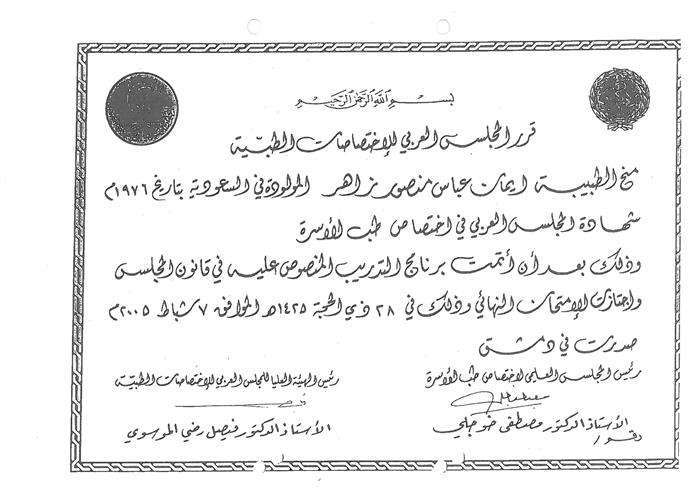 بسم الله الرحمن الرحيم
قرر المجلس العربي للإختصاصات الطبيّة
منح الطبيبة ايمان عباس منصور زاهر المولودة في السعودية بتاريخ ١٩٧٦م
شهادة المجلس العربي في اختصاص طب الأسرة
وذلك بعد أن أتمت برنامج التدريب المنصوص عليه في قانون المجلس
واجتازت الإمتحان النهائي وذلك في ٢٨ ذي الحجة ١٤٢٥هـ الموافق ٧ شباط ٢٠٠٥م
صدرت في دمشق
رئيس المجلس العلمي لاختصاص طب الأسرة
رئيس الهيئة العليا للمجلس العربي للاختصاصات الطبيّة
الأستاذ الدكتور مصطفى خوجلي
الأستاذ الدكتور فيصل رضي الموسوي